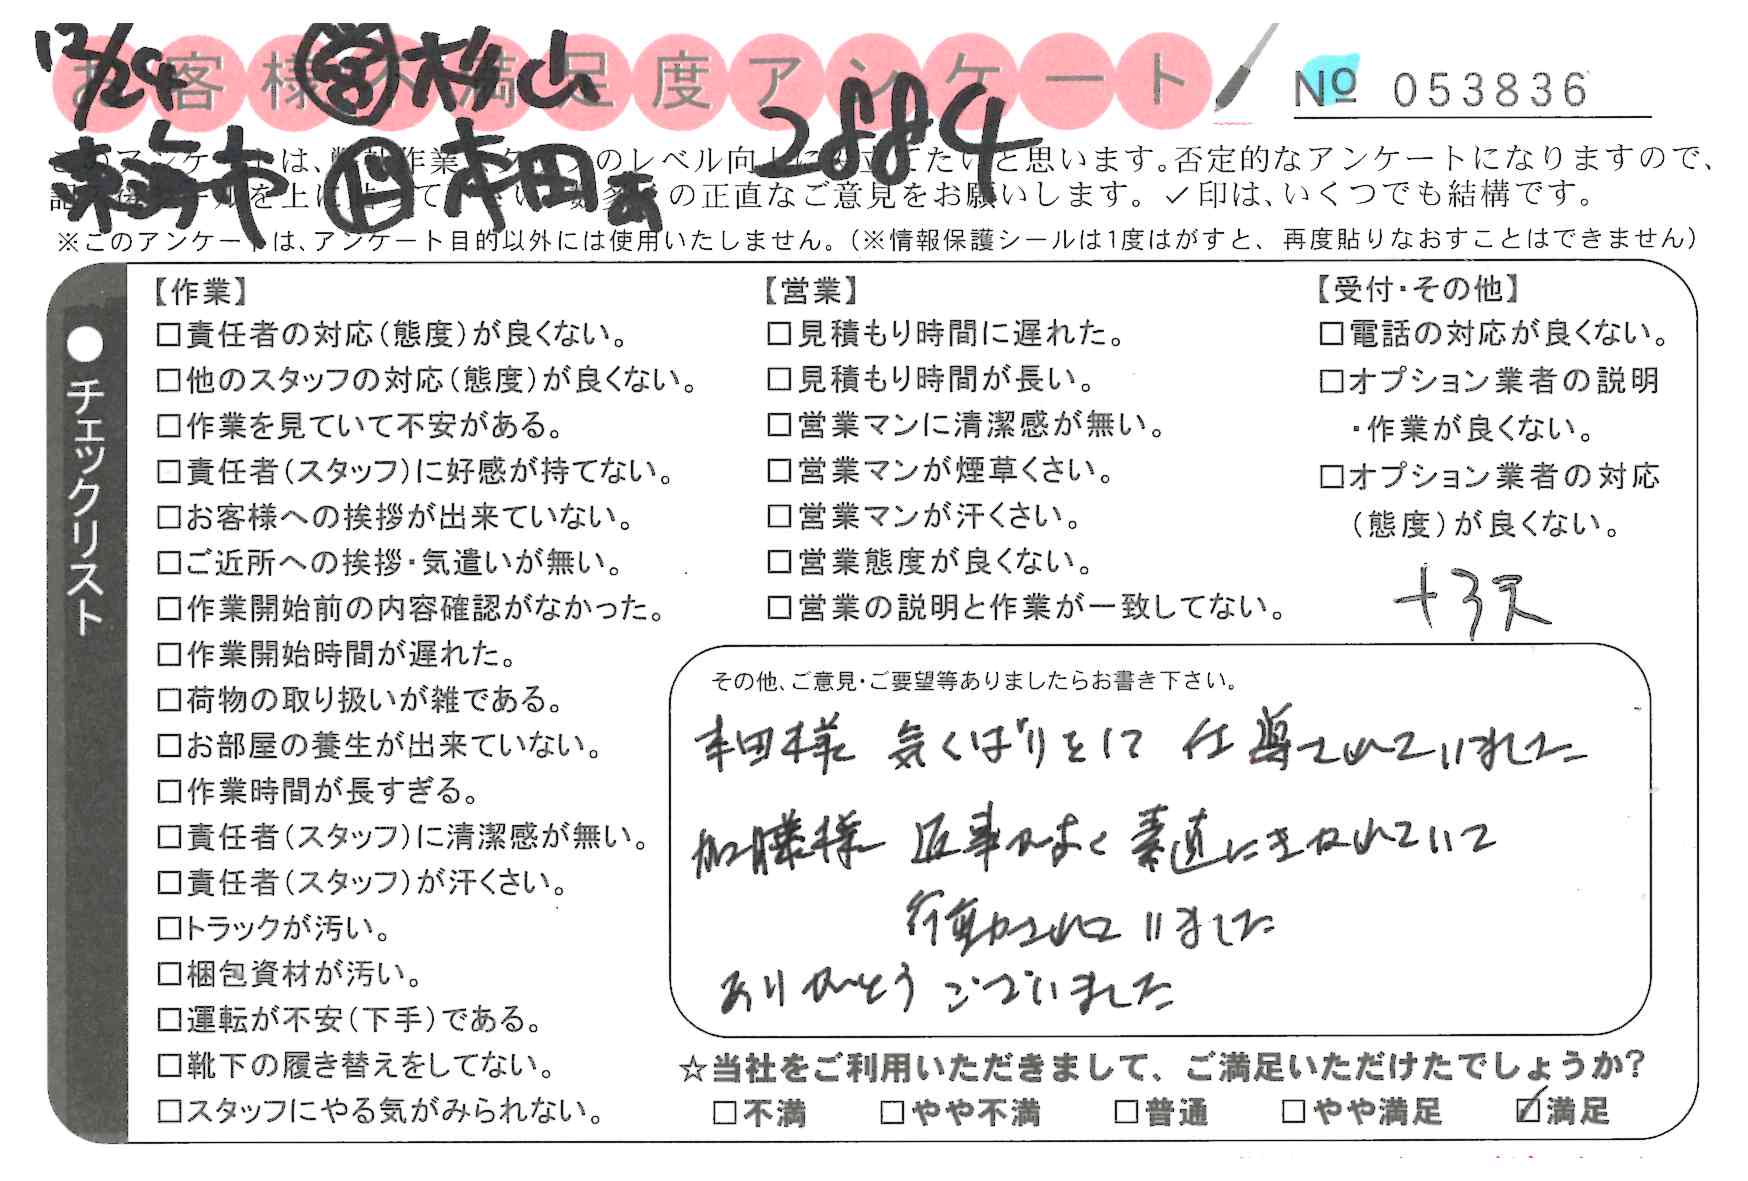 12/24 営 杉山 2884
お客様不満足度アンケート
№ 053836
東海市 作 本田あ
このアンケートは、弊社作業スタッフのレベル向上に役立てたいと思います。否定的なアンケートになりますので、
を上に の正直なご意見をお願いします。✓印は、いくつでも結構です。
※このアンケートは、アンケート目的以外には使用いたしません。(※情報保護シールは1度はがすと、再度貼りなおすことはできません)
●チェックリスト
【作業】
□責任者の対応(態度)が良くない。
□他のスタッフの対応(態度)が良くない。
□作業を見ていて不安がある。
□責任者(スタッフ)に好感が持てない。
□お客様への挨拶が出来ていない。
□ご近所への挨拶・気遣いが無い。
□作業開始前の内容確認がなかった。
□作業開始時間が遅れた。
□荷物の取り扱いが雑である。
□お部屋の養生が出来ていない。
□作業時間が長すぎる。
□責任者(スタッフ)に清潔感が無い。
□責任者(スタッフ)が汗くさい。
□トラックが汚い。
□梱包資材が汚い。
□運転が不安(下手)である。
□靴下の履き替えをしてない。
□スタッフにやる気がみられない。
【営業】
□見積もり時間に遅れた。
□見積もり時間が長い。
□営業マンに清潔感が無い。
□営業マンが煙草くさい。
□営業マンが汗くさい。
□営業態度が良くない。
□営業の説明と作業が一致してない。
【受付・その他】
□電話の対応が良くない。
□オプション業者の説明
・作業が良くない。
□オプション業者の対応
(態度)が良くない。
+3天
その他、ご意見・ご要望等ありましたらお書き下さい。
本田様 気くばりとして 仕導されていました
加藤様 返事がよく 素直にきかれていて
行動されていました
ありがとうございました
☆当社をご利用いただきまして、ご満足いただけたでしょうか?
□不満 □やや不満 □普通 □やや満足 ☑満足